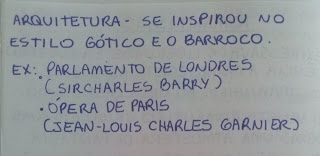 ARQUITETURA - SE INSPIROU NO
ESTILO GÓTICO E O BARROCO.
EX: PARLAMENTO DE LONDRES
(SIR CHARLES BARRY)
• ÓPERA DE PARIS
(JEAN-LOUIS CHARLES GARNIER)